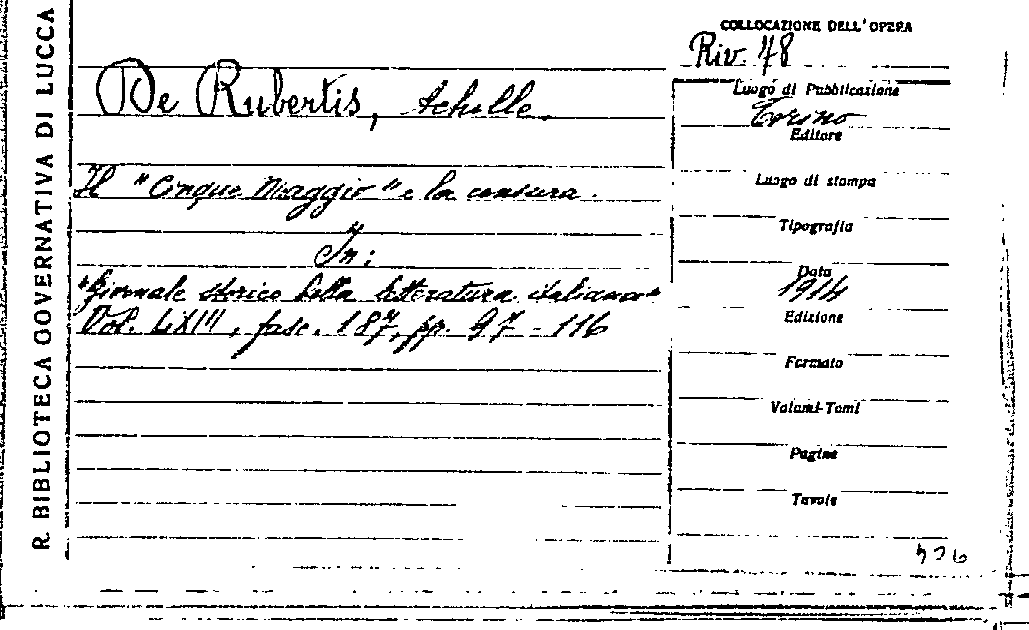 R. BIBLIOTECA GOVERNATIVA DI LUCCA
COLLOCAZIONE DELL'OPERA
Riv. 48
De Rubertis, Achille.
Il "Cinque Maggio" e la censura.
In:
"Giornale storico della letteratura italiana"
Vol. LXIII, fasc. 187, pp. 97-116
Luogo di Pubblicazione
Torino
Editore
Luogo di stampa
Tipografia
Data
1914
Edizione
Formato
Volumi-Tomi
Pagine
Tavole